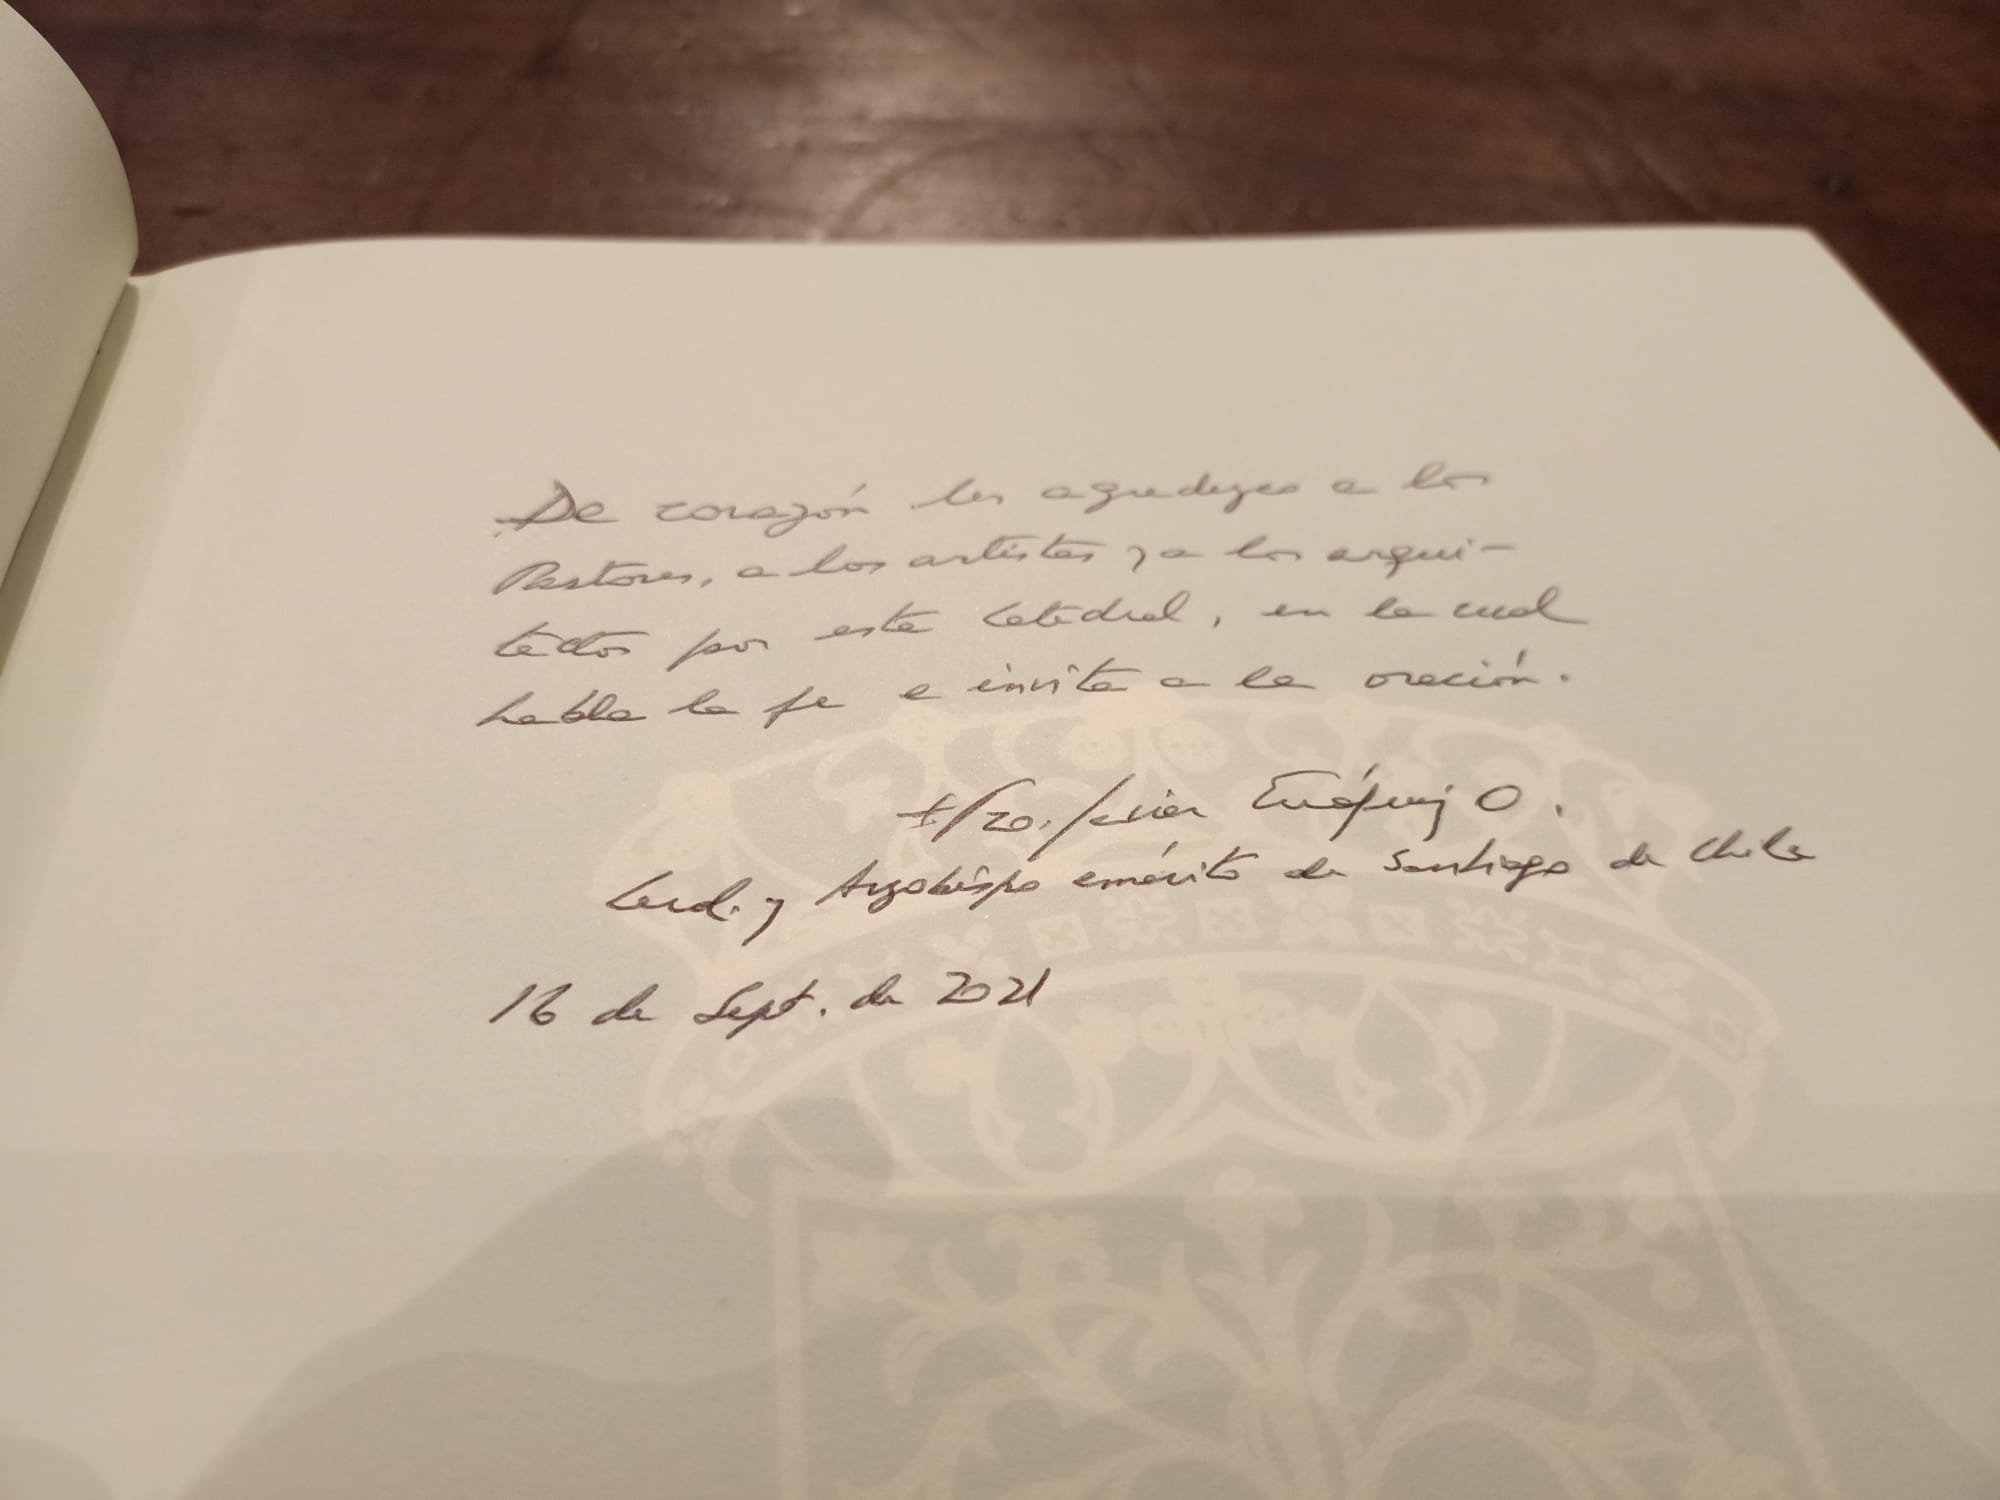 De corazón les agradezco a los
Pastores, a los artistas y a los arqui-
tectos por esta Catedral, en la cual
habla la fe e invita a la oración.
+ Fco. Javier Errázuriz O.
Card. y Arzobispo emérito de Santiago de Chile
16 de Sept. de 2021